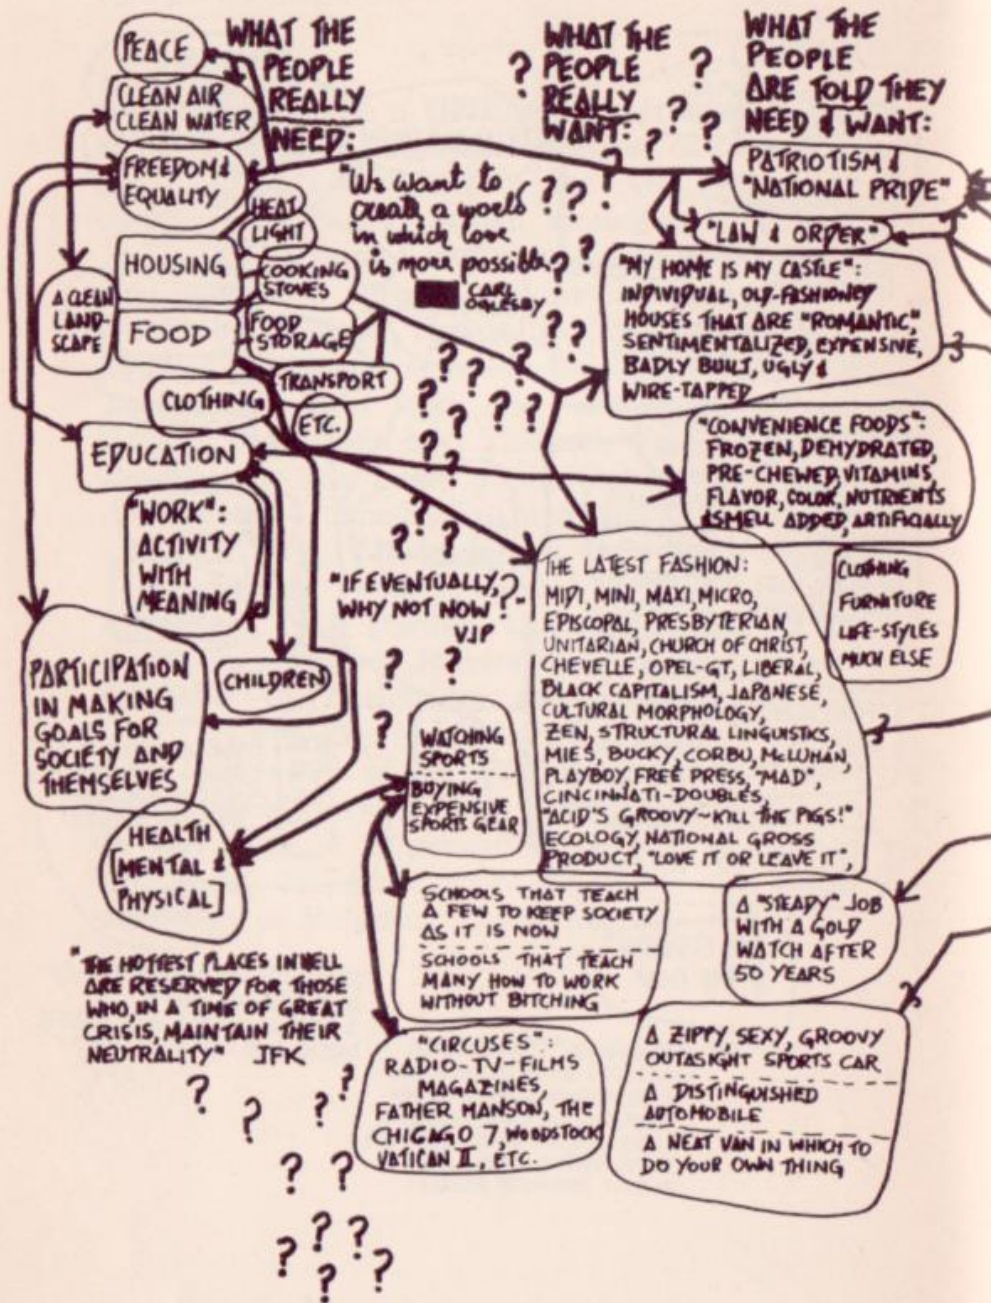 WHAT THE
PEOPLE
REALLY
NEED:
WHAT THE
PEOPLE
REALLY
WANT:
WHAT THE
PEOPLE
ARE TOLD THEY
NEED & WANT:
PEACE
CLEAN AIR
CLEAN WATER
FREEDOM &
EQUALITY
HEAT
LIGHT
HOUSING
COOKING
STOVES
A CLEAN
LAND-
SCAPE
FOOD
FOOD
STORAGE
TRANSPORT
CLOTHING
ETC.
EDUCATION
"WORK":
ACTIVITY
WITH
MEANING
PARTICIPATION
IN MAKING
GOALS FOR
SOCIETY AND
THEMSELVES
CHILDREN
HEALTH
[MENTAL &
PHYSICAL]
"THE HOTTEST PLACES IN HELL
ARE RESERVED FOR THOSE
WHO, IN A TIME OF GREAT
CRISIS, MAINTAIN THEIR
NEUTRALITY" JFK
"We want to
create a world
in which love
is more possible"
CARL
OGLESBY
"IF EVENTUALLY,
WHY NOT NOW?"
VJP
WATCHING
SPORTS
BUYING
EXPENSIVE
SPORTS GEAR
SCHOOLS THAT TEACH
A FEW TO KEEP SOCIETY
AS IT IS NOW
SCHOOLS THAT TEACH
MANY HOW TO WORK
WITHOUT BITCHING
"CIRCUSES":
RADIO-TV-FILMS
MAGAZINES,
FATHER MANSON, THE
CHICAGO 7, WOODSTOCK
VATICAN II, ETC.
PATRIOTISM &
"NATIONAL PRIDE"
"LAW & ORDER"
"MY HOME IS MY CASTLE":
INDIVIDUAL, OLD-FASHIONED
HOUSES THAT ARE "ROMANTIC",
SENTIMENTALIZED, EXPENSIVE,
BADLY BUILT, UGLY &
WIRE-TAPPED
"CONVENIENCE FOODS":
FROZEN, DEHYDRATED,
PRE-CHEWED, VITAMINS,
FLAVOR, COLOR, NUTRIENTS
& SMELL ADDED, ARTIFICIALLY
THE LATEST FASHION:
MIDI, MINI, MAXI, MICRO,
EPISCOPAL, PRESBYTERIAN,
UNITARIAN, CHURCH OF CHRIST,
CHEVELLE, OPEL-GT, LIBERAL,
BLACK CAPITALISM, JAPANESE,
CULTURAL MORPHOLOGY,
ZEN, STRUCTURAL LINGUISTICS,
MIES, BUCKY, CORBU, McLUHAN,
PLAYBOY, FREE PRESS, "MAD",
CINCINNATI-DOUBLES,
"ACID'S GROOVY~KILL THE PIGS!"
ECOLOGY, NATIONAL GROSS
PRODUCT, "LOVE IT OR LEAVE IT",
CLOTHING
FURNITURE
LIFE-STYLES
MUCH ELSE
A "STEADY" JOB
WITH A GOLD
WATCH AFTER
50 YEARS
A ZIPPY, SEXY, GROOVY
OUTASIGHT SPORTS CAR
A DISTINGUISHED
AUTOMOBILE
A NEAT VAN IN WHICH TO
DO YOUR OWN THING